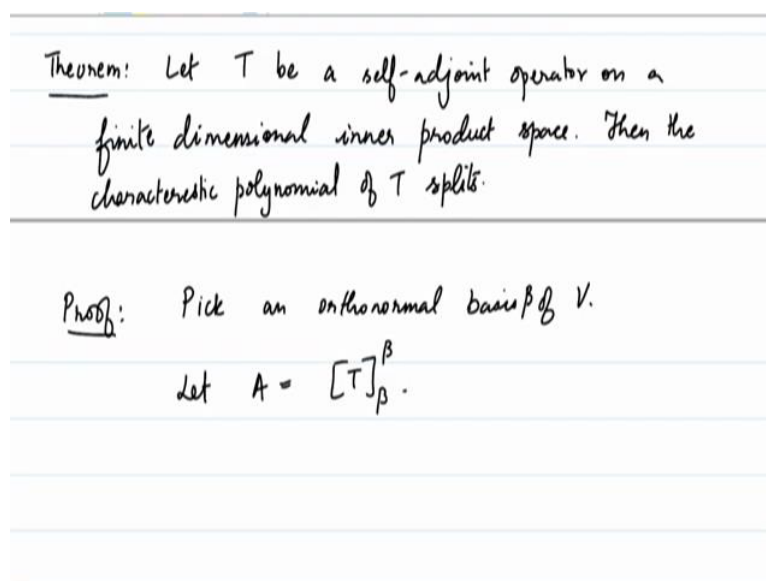 Theorem: Let T be a self-adjoint operator on a
finite dimensional inner product space. Then the
characterestic polynomial of T splits.
Proof: Pick an orthonormal basis β of V.
Let A = [T]_β^β.